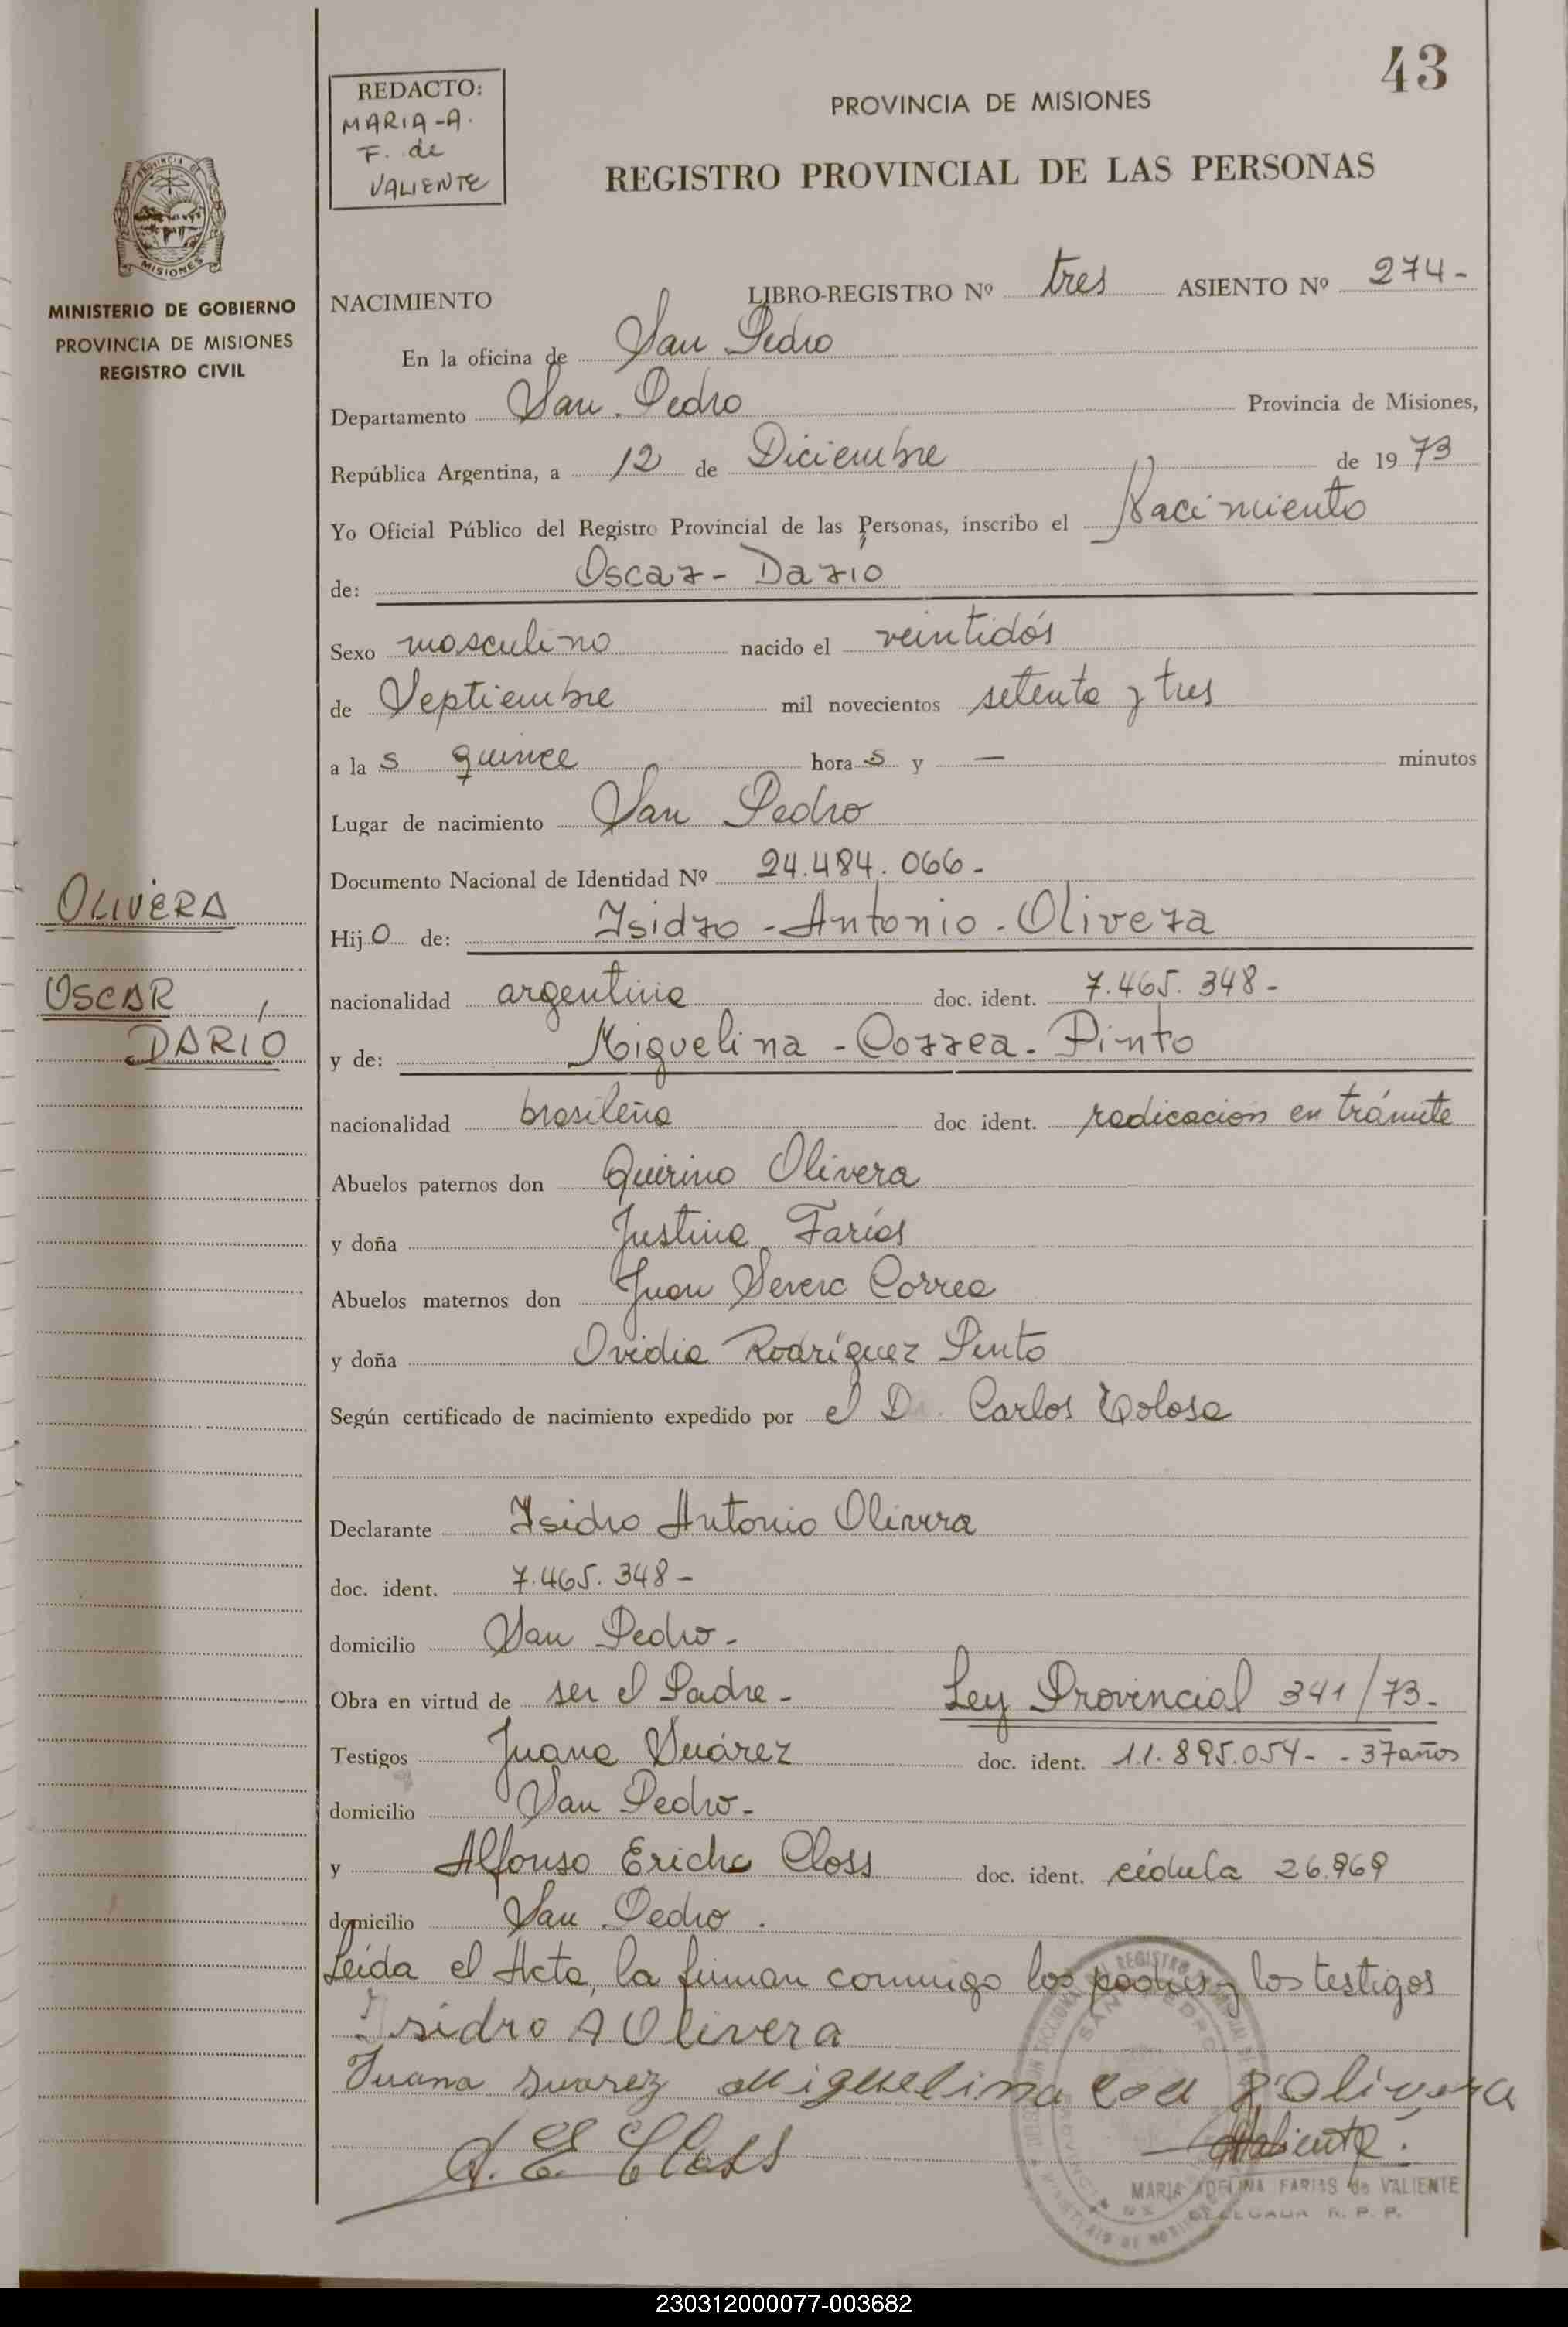 43
REDACTO:
MARIA-A.
F. de
VALIENTE
PROVINCIA DE MISIONES
REGISTRO PROVINCIAL DE LAS PERSONAS
PROVINCIA
MISIONES
MINISTERIO DE GOBIERNO
PROVINCIA DE MISIONES
REGISTRO CIVIL
NACIMIENTO LIBRO-REGISTRO Nº tres ASIENTO Nº 274-
En la oficina de San Pedro
Departamento San Pedro Provincia de Misiones,
República Argentina, a 12 de Diciembre de 1973
Yo Oficial Público del Registro Provincial de las Personas, inscribo el Nacimiento
de: Oscar - Dario
Sexo masculino nacido el veintidós
de Septiembre mil novecientos setenta y tres
a la s quince hora s y — minutos
Lugar de nacimiento San Pedro
Documento Nacional de Identidad Nº 24.484.066-
OLIVERA
Hijo de: Isidro - Antonio - Olivera
OSCAR
DARÍO
nacionalidad argentina doc. ident. 7.465.348-
y de: Miguelina - Correa - Pinto
nacionalidad brasileña doc. ident. radicación en trámite
Abuelos paternos don Quirino Olivera
y doña Justina Farías
Abuelos maternos don Juan Severo Correa
y doña Ovidia Rodríguez Pinto
Según certificado de nacimiento expedido por el D. Carlos Tolosa
Declarante Isidro Antonio Olivera
doc. ident. 7.465.348-
domicilio San Pedro-
Obra en virtud de ser el Padre- Ley Provincial 341/73-
Testigos Juana Suárez doc. ident. 11.895.054- - 37 años
domicilio San Pedro-
y Alfonso Ericho Closs doc. ident. cédula 26.969
domicilio San Pedro.
Leída el Acta, la firman conmigo los padres y los testigos
Isidro A Olivera
Juana Suarez Miguelina Olivera
A. E. Closs Valiente.
MARIA ADELINA FARIAS de VALIENTE
DELEGADA R. P. P.
230312000077-003682